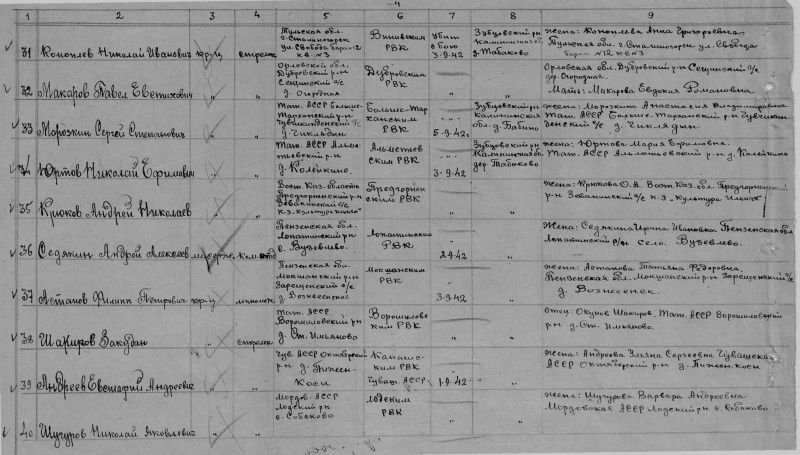 4
1 2 3 4 5 6 7 8 9
31 Коноплев Николай Иванович кр-ц стрелок
Тульская обл.
г. Сталиногорск
ул. Свобода барак 12
кв №3
РВК
Убит
в бою
3-9-42
Зубцовский р-н
Калининская
д. Табаково
жена: Коноплева Анна Григорьевна
Тульская обл. г. Сталиногорск ул. Свобода
барак №12 кв №3
32 Макаров Павел Евтихович " "
Орловской обл.
Дубровский р-н
Сещинский с/с
д. Огородная
Дубровским
РВК
" "
Орловская обл. Дубровский р-н Сещинский с/с
д. Огородная.
Мать: Макарова Евдокия Романовна
33 Морозкин Сергей Степанович " "
Тат. АССР Больше-
Тарханский р-н
д. Чикладин
Больше-Тар
ханским
РВК
5-9-42.
Зубцовский р-н
Калининская
обл. д. Бабино
жена: Морозкина Анастасия Владимировна
Тат. АССР Больше-Тарханский р-н
с/с д. Чикладин
34 Юртов Николай Ефимович " "
Тат. АССР Альме-
тьевский р-н
д. Колейкино.
Альметьев
ским РВК
3-9-42
Зубцовский р-н
Калининская об.
дер. Табаково
жена: Юртова Мария Ефимовна.
Тат. АССР Альметьевский р-н д. Колейкино
35 Крюков Андрей Николаев " "
Вост. Каз. область
Предгорненский р-н
к-з "Культура
Предгорнен
ским РВК
" "
жена: Крюкова О.А. Вост. Каз. обл. Предгорненский
р-н с/с к-з Культура
36 Седякин Андрей Алексеев мл. серж. Ком. отд
Пензенская обл.
Лопатинский р-н
с. Вузевлево.
Лопатинским
РВК
2-9-42 "
Жена: Седякина Ирина Ивановна Пензенская обл
Лопатинский р-н село. Вузевлево.
37 Астапов Филипп Петрович кр-ц
Пензенская обл.
Мокшанский р-н
д. Вознесенское
Мокшанским
РВК
3-9-42 "
жена: Астапова Татьяна Федоровна.
Пензенская обл. Мокшанский р-н
д. Вознесенск.
38 Шакиров Закуван " стрелок
Тат. АССР
Ворошиловский р-н
д. Ст. Ильяново
Ворошиловс
ким РВК
" "
отец: Окунов Шакиров. Тат. АССР Ворошиловский
р-н д. Ст. Ильяново.
39 Андреев Евстафий Андреевич " "
Чув. АССР Октябрьский
р-н
Коси
Канашс-
ким РВК
Чуваш. АССР
1-9-42 "
жена: Андреева Ульяна Сергеевна Чувашская
АССР Октябрьский р-н
40 Шугуров Николай Яковлевич " "
Мордов. АССР
с. Собаково
РВК
" "
жена: Шугурова Варвара Андреевна
Мордовская АССР с. Собаково